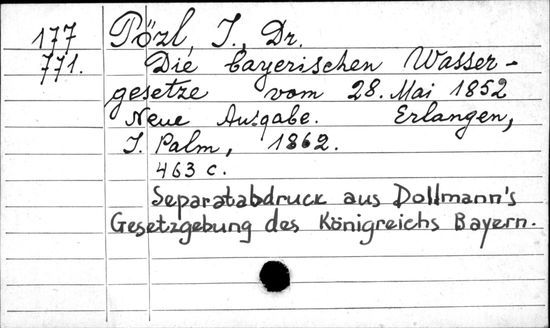 177 Pözl, J., Dr.
771. Die bayerischen Wasser-
gesetze vom 28. Mai 1852
Neue Ausgabe. Erlangen,
J. Palm, 1862.
463 c.
Separatabdruck aus Dollmann's
Gesetzgebung des Königreichs Bayern.